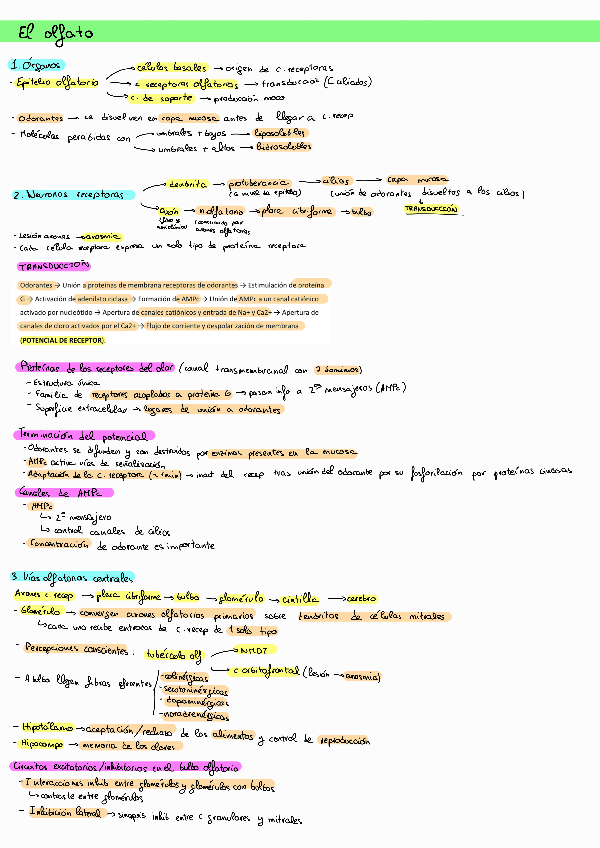 El olfato
1. Órganos
- Epitelio olfatorio → células basales → origen de c. receptoras
→ c receptoras olfatorias → transducción (Ciliadas)
→ c. de soporte → producción moco
- Odorantes → se disuelven en capa mucosa antes de llegar a c. recep
- Moléculas percibidas con → umbrales + bajos → liposolubles
→ umbrales + altos → hidrosolubles
2. Neuronas receptoras → dendrita → protuberancia → cilios → capa mucosa
(a nivel de epitelio) (unión de odorantes disueltos a los cilios)
→ axón → n olfatorio → placa cribiforme → bulbo
TRANSDUCCIÓN
- Lesión axones → anosmia
- Cada célula receptora expresa un solo tipo de proteína receptora
TRANSDUCCIÓN
Odorantes → Unión a proteínas de membrana receptoras de odorantes → Estimulación de proteína
G → Activación de adenilato ciclasa → Formación de AMPc → Unión de AMPc a un canal catiónico
activado por nucleótido → Apertura de canales catiónicos y entrada de Na+ y Ca2+ → Apertura de
canales de cloro activados por el Ca2+ → Flujo de corriente y despolarización de membrana
(POTENCIAL DE RECEPTOR).
Proteínas de los receptores del olor (canal transmembranal con 7 dominios)
- Estructura única
- Familia de receptores acoplados a proteína G → pasan info a 2os mensajeros (AMPc)
- Superficie extracelular → lugares de unión a odorantes
Terminación del potencial
- Odorantes se difunden y son destruidos por enzimas presentes en la mucosa
- AMPc activa vías de señalización
- Adaptación de la c. receptora (~ 1min) → inact del recep tras unión del odorante por su fosforilación por proteínas cinasas
Canales de AMPc
- AMPc
↳ 2º mensajero
↳ control canales de cilios
- Concentración de odorante es importante
3. Vías olfatorias centrales
Axones c. recep → placa cribiforme → bulbo → glomérulo → cintilla → cerebro
- Glomérulo → convergen axones olfatorios primarios sobre dendritas de células mitrales
↳ cada uno recibe entradas de c. recep de 1 solo tipo
- Percepciones conscientes. tubérculo olf → NMDT
→ c orbitofrontal (lesión → anosmia)
- A bulbo llegan fibras eferentes - colinérgicas
- serotoninérgicas
- dopaminérgicas
- noradrenérgicas
- Hipotálamo → aceptación/rechazo de los alimentos y control de reproducción
- Hipocampo → memoria de los olores
Circuitos excitatorios/inhibitorios en el bulbo olfatorio
- Interacciones inhib entre glomérulos y glomérulos con bulbos
↳ contraste entre glomérulos
- Inhibición lateral → sinapsis inhib entre c granulares y mitrales